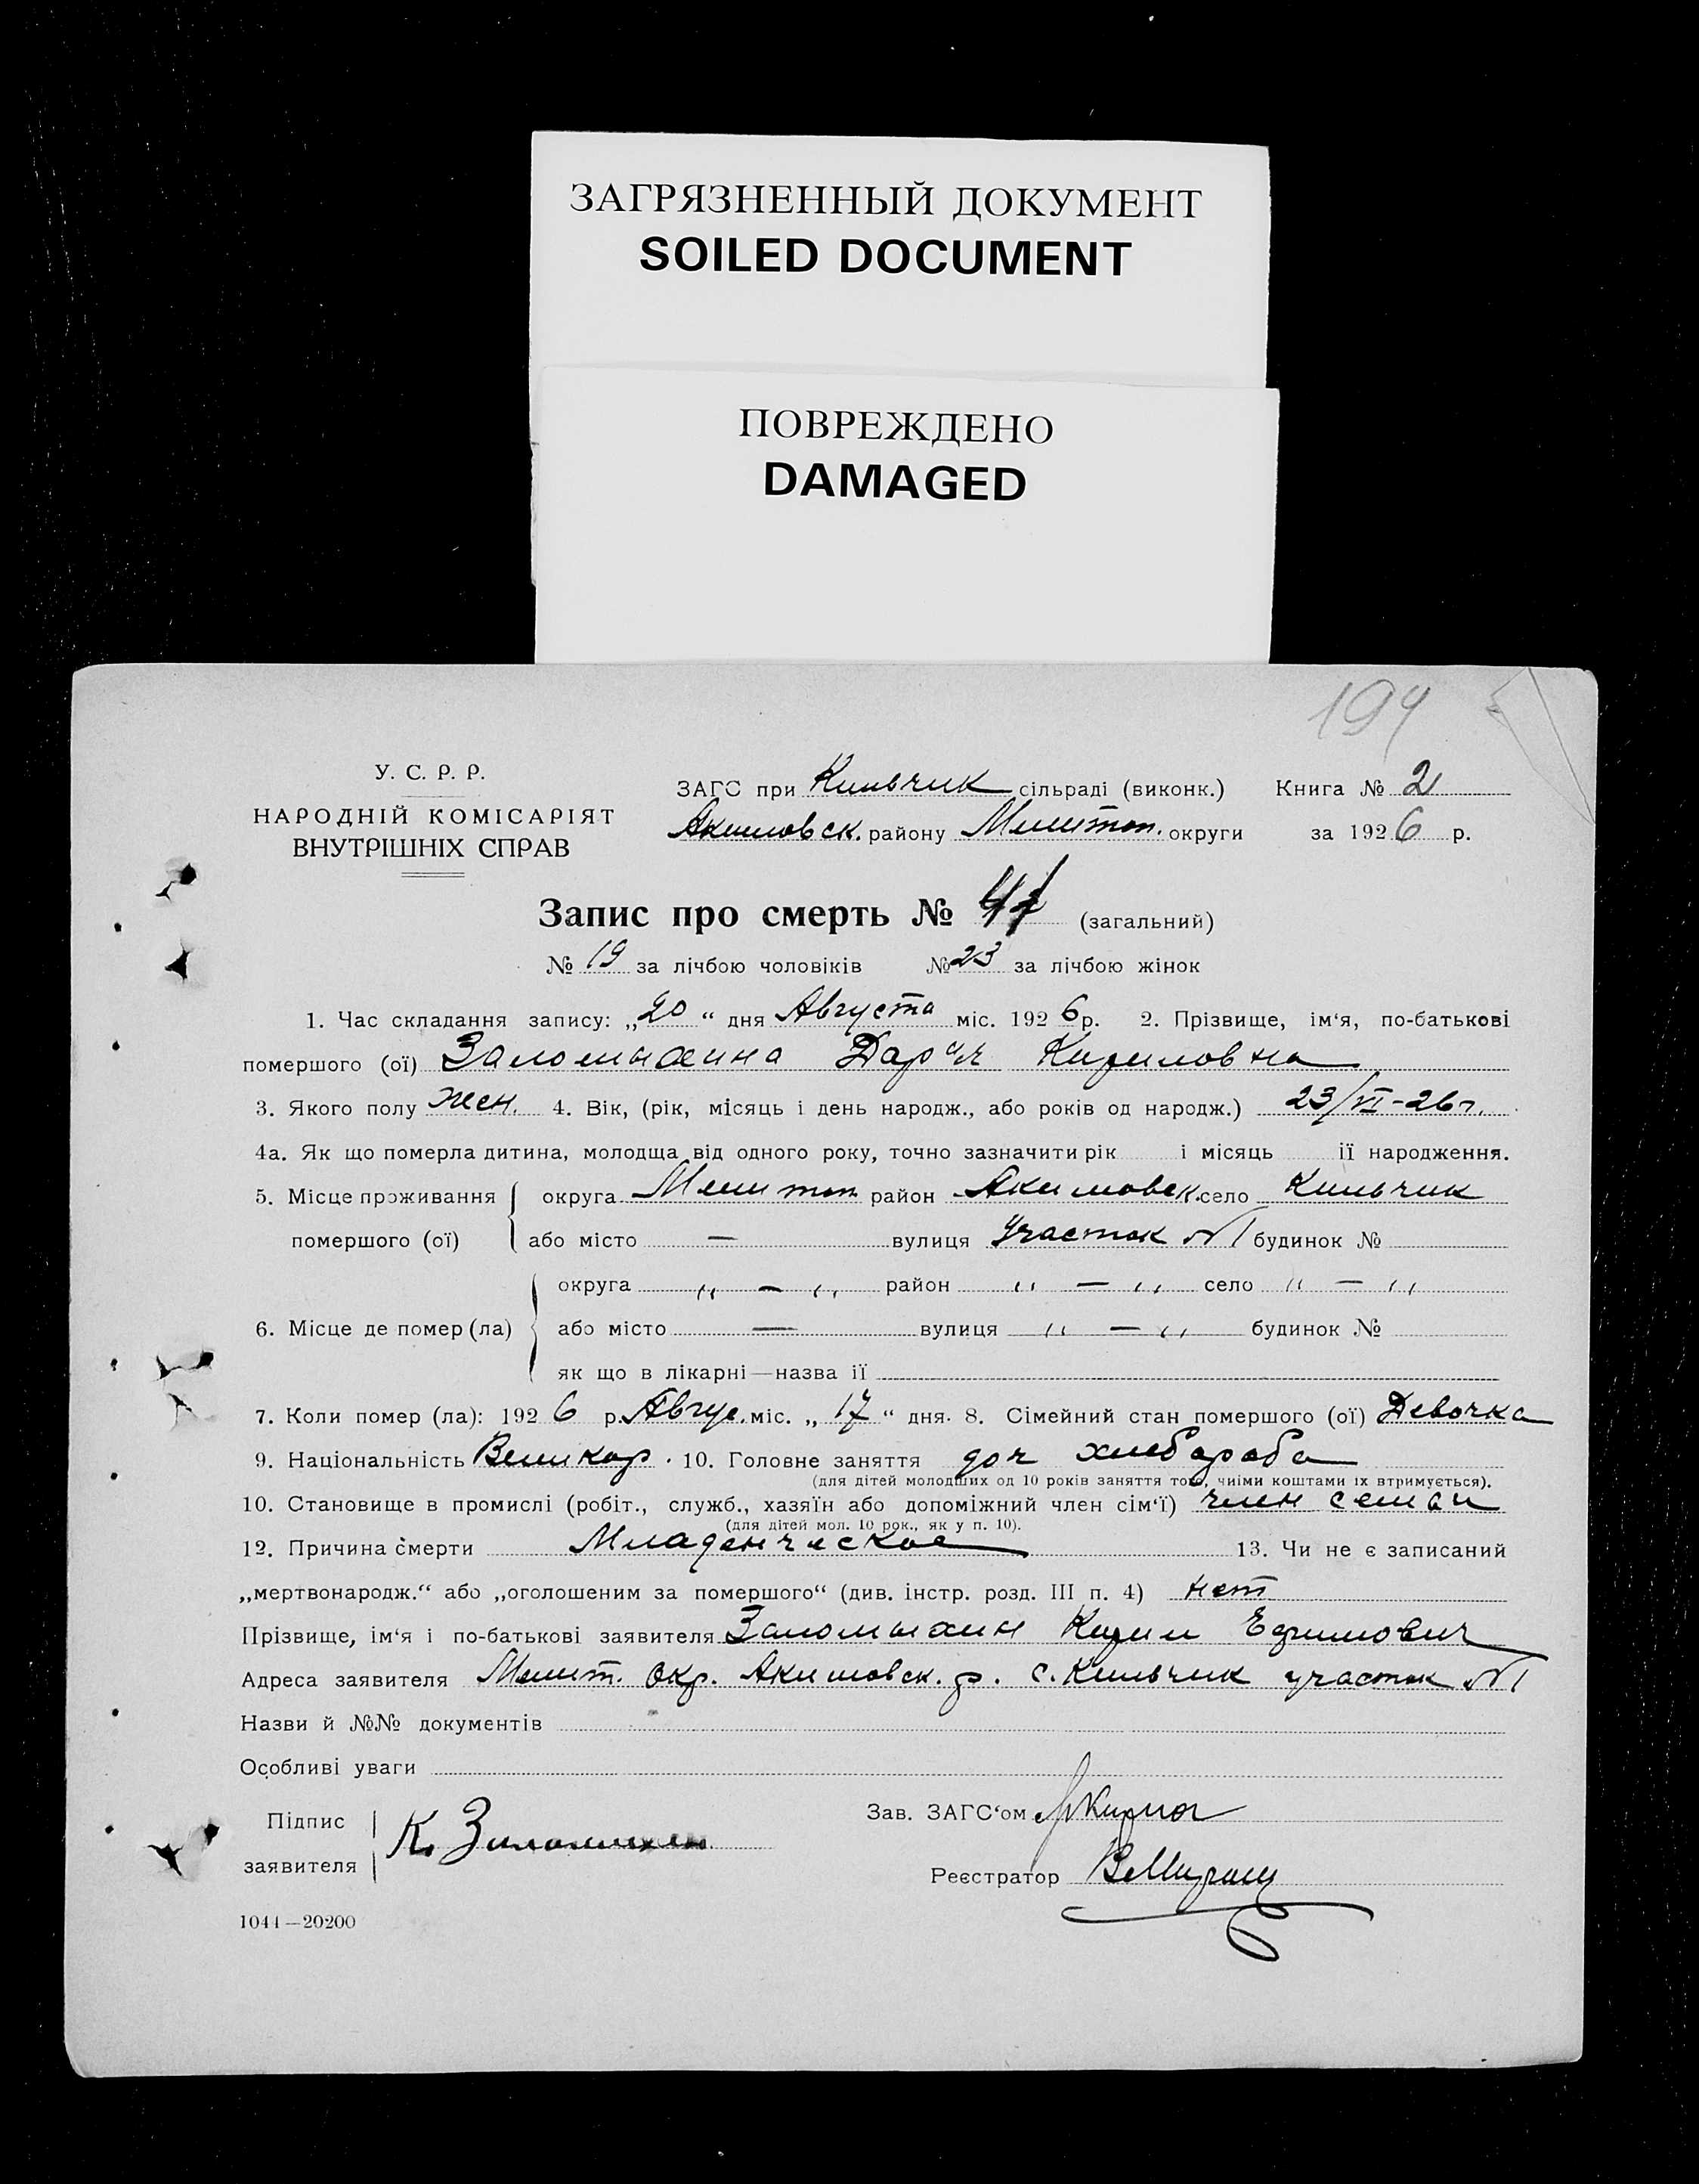 ЗАГРЯЗНЕННЫЙ ДОКУМЕНТ
SOILED DOCUMENT
ПОВРЕЖДЕНО
DAMAGED
194
У. С. Р. Р.
НАРОДНІЙ КОМІСАРІЯТ
ВНУТРІШНІХ СПРАВ
ЗАГС при Кильчик сільраді (виконк.) Книга № 2
Акимовск. району Мелитоп. округи за 1926 р.
Запис про смерть № (загальний)
№ 19 за лічбою чоловіків № 23 за лічбою жінок
1. Час складання запису: „20“ дня Августа міс. 1926 р. 2. Прізвище, ім‘я, по-батькові
помершого (ої) Заломыхина Дарья Кириловна
3. Якого полу жен. 4. Вік, (рік, місяць і день народж., або років од народж.) 23/VI-26 г.
4а. Як що померла дитина, молодща від одного року, точно зазначити рік і місяць її народження.
5. Місце проживання округа Мелитоп район Акимовск. село Кильчик
помершого (ої) або місто — вулиця Участок №1 будинок №
округа „ — „ район „ — „ село „ — „
6. Місце де помер (ла) або місто — вулиця „ — „ будинок №
як що в лікарні—назва її
7. Коли помер (ла): 1926 р. Авгус. міс. „17“ дня. 8. Сімейний стан помершого (ої) Девочка
9. Національність Великор. 10. Головне заняття доч хлебороба
(для дітей молодших од 10 років заняття того, чиїми коштами їх втримується).
10. Становище в промислі (робіт., служб., хазяїн або допоміжний член сім‘ї) член семьи
(для дітей мол. 10 рок., як у п. 10).
12. Причина смерти Младенческое 13. Чи не є записаний
„мертвонародж.“ або „оголошеним за помершого“ (див. інстр. розд. III п. 4) нет
Прізвище, ім‘я і по-батькові заявителя Заломыхин Кирил Ефимович
Адреса заявителя Мелит. Окр. Акимовск. р. с. Кильчик участок №1
Назви й №№ документів
Особливі уваги
Підпис
заявителя К. Заломыхин
Зав. ЗАГС‘ом
Реєстратор
1044—20200